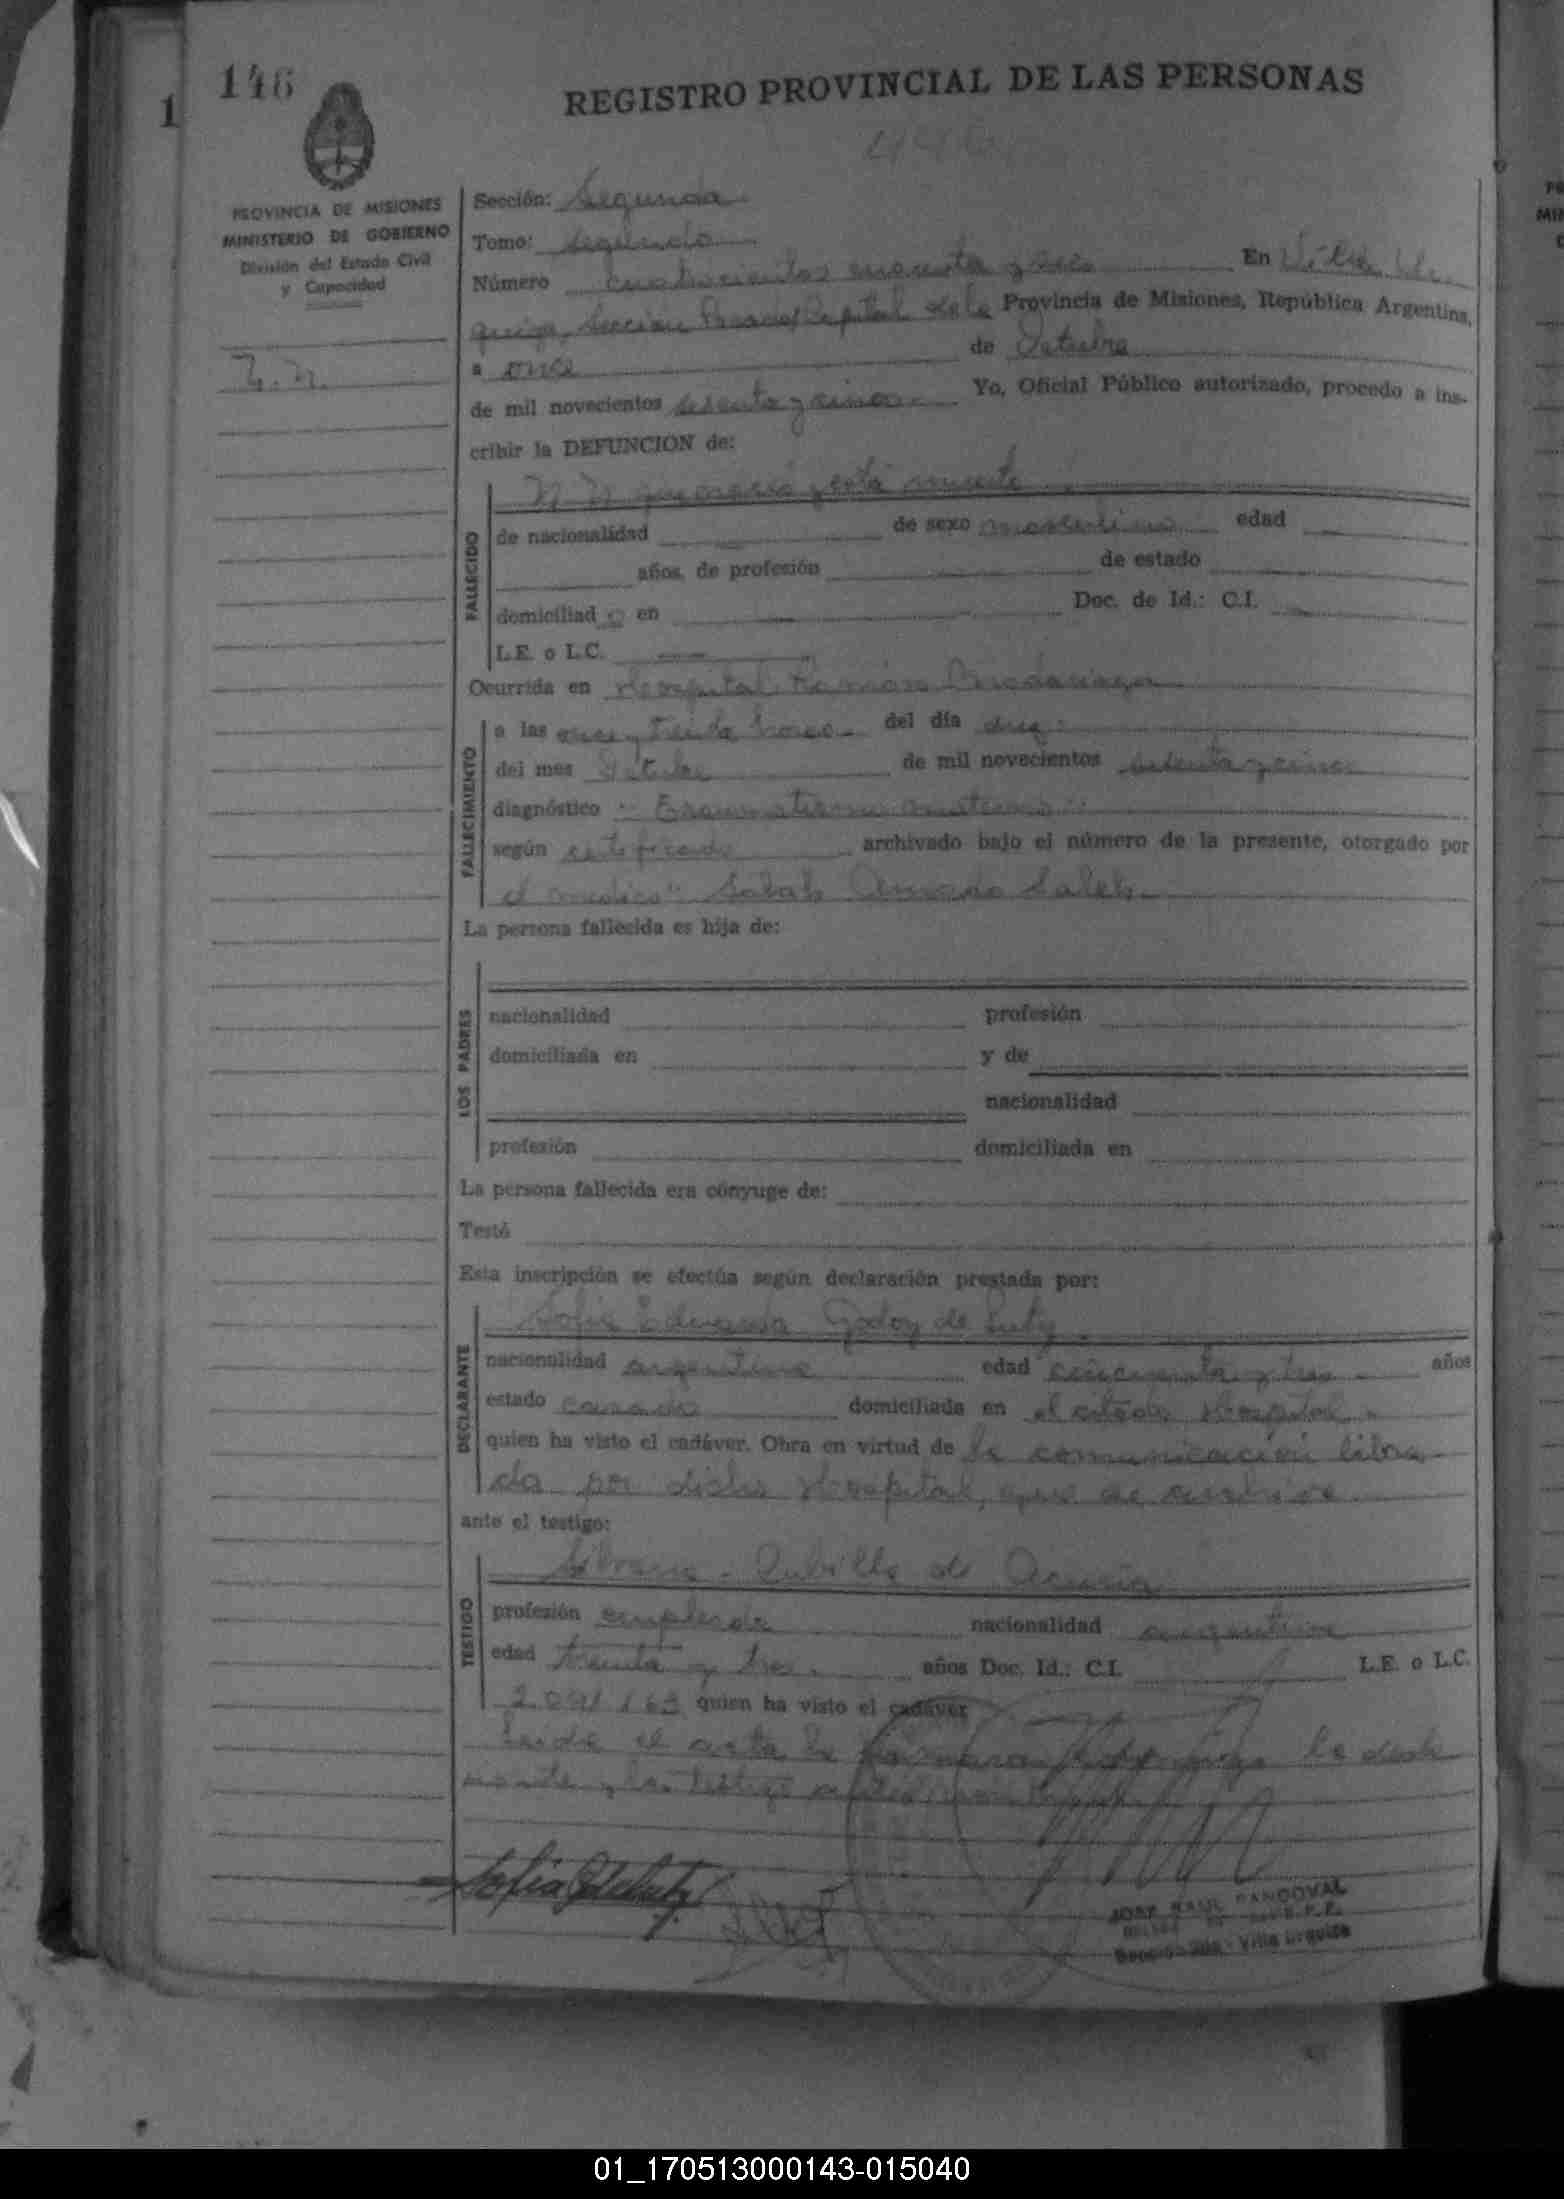 146
1
REGISTRO PROVINCIAL DE LAS PERSONAS
446
PROVINCIA DE MISIONES
MINISTERIO DE GOBIERNO
División del Estado Civil
y Capacidad
N. N.
Sección: Segunda
Tomo: segundo
Número cuatrocientos cuarenta y seis En Villa Ur
quiza, Sección Posadas Capital de la Provincia de Misiones, República Argentina,
a once de Octubre
de mil novecientos setenta y cinco Yo, Oficial Público autorizado, procedo a ins-
cribir la DEFUNCION de:
N N que nació y está muerto
FALLECIDO
de nacionalidad de sexo masculino edad
años, de profesión de estado
domiciliad o en Doc. de Id.: C.I.
L.E. o L.C.
Ocurrida en Hospital Ramón Madariaga
FALLECIMIENTO
a las once y treinta horas del día diez
del mes Octubre de mil novecientos setenta y cinco
diagnóstico
según certificado archivado bajo el número de la presente, otorgado por
el medico Salah Amado Saleh
La persona fallecida es hija de:
LOS PADRES
nacionalidad profesión
domiciliada en y de
nacionalidad
profesión domiciliada en
La persona fallecida era cónyuge de:
Testó
Esta inscripción se efectúa según declaración prestada por:
DECLARANTE
Sofia Eduarda Godoy de Luty
nacionalidad argentina edad cincuenta y tres años
estado casada domiciliada en el citado Hospital
quien ha visto el cadáver. Obra en virtud de la comunicación libra
da por dicho Hospital, que se archiva
ante el testigo:
TESTIGO
de Acuña
profesión empleada nacionalidad argentina
edad treinta y tres años Doc. Id.: C.I. L.E. o L.C.
2.091.163 quien ha visto el cadáver
Leída el acta la firmaron conmigo la decla
rante y la testigo
Sofia G de Luty
JOSE RAUL SANDOVAL
Sección 2da - Villa Urquiza
01_170513000143-015040